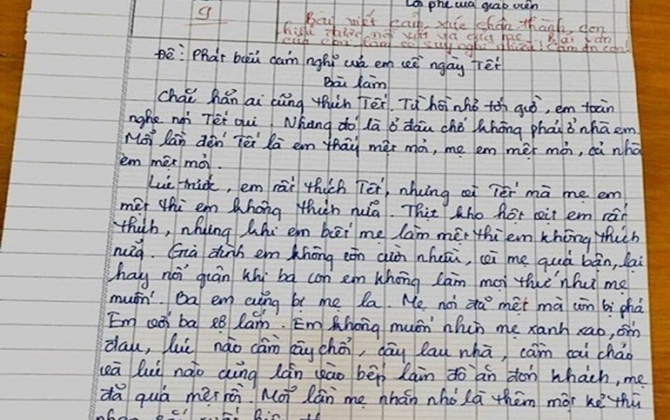 Lời phê của giáo viên
9
Bài viết cảm xúc chân thành, con
hiểu được nỗi vất vả của mẹ. Bài văn
của con làm cô suy nghĩ nhiều! Cảm ơn con!
Đề: Phát biểu cảm nghĩ của em về ngày Tết
Bài làm
Chắc hẳn ai cũng thích Tết. Từ hồi nhỏ tới giờ, em toàn
nghe nói Tết vui. Nhưng đó là ở đâu chớ không phải ở nhà em.
Mỗi lần đến Tết là em thấy mệt mỏi, mẹ em mệt mỏi, cả nhà
em mệt mỏi.
Lúc trước, em rất thích Tết, nhưng vì Tết mà mẹ em
mệt thì em không thích nữa. Thịt kho hột vịt em rất
thích, nhưng khi em biết mẹ làm mệt thì em không thích
nữa. Gia đình em không còn cười nhiều, vì mẹ quá bận, lại
hay nổi giận khi ba con em không làm mọi thứ như mẹ
muốn. Ba em cũng bị mẹ la. Mẹ nói đã mệt mà còn bị phá
Em với ba sợ lắm. Em không muốn nhìn mẹ xanh xao, ốm
đau, lúc nào cầm cây chổi, cây lau nhà, cầm cái chảo
và lúc nào cũng lăn vào bếp làm đồ ăn đón khách, mẹ
đã quá mệt rồi. Mỗi lần mẹ nhăn nhó là thêm một kẻ thù